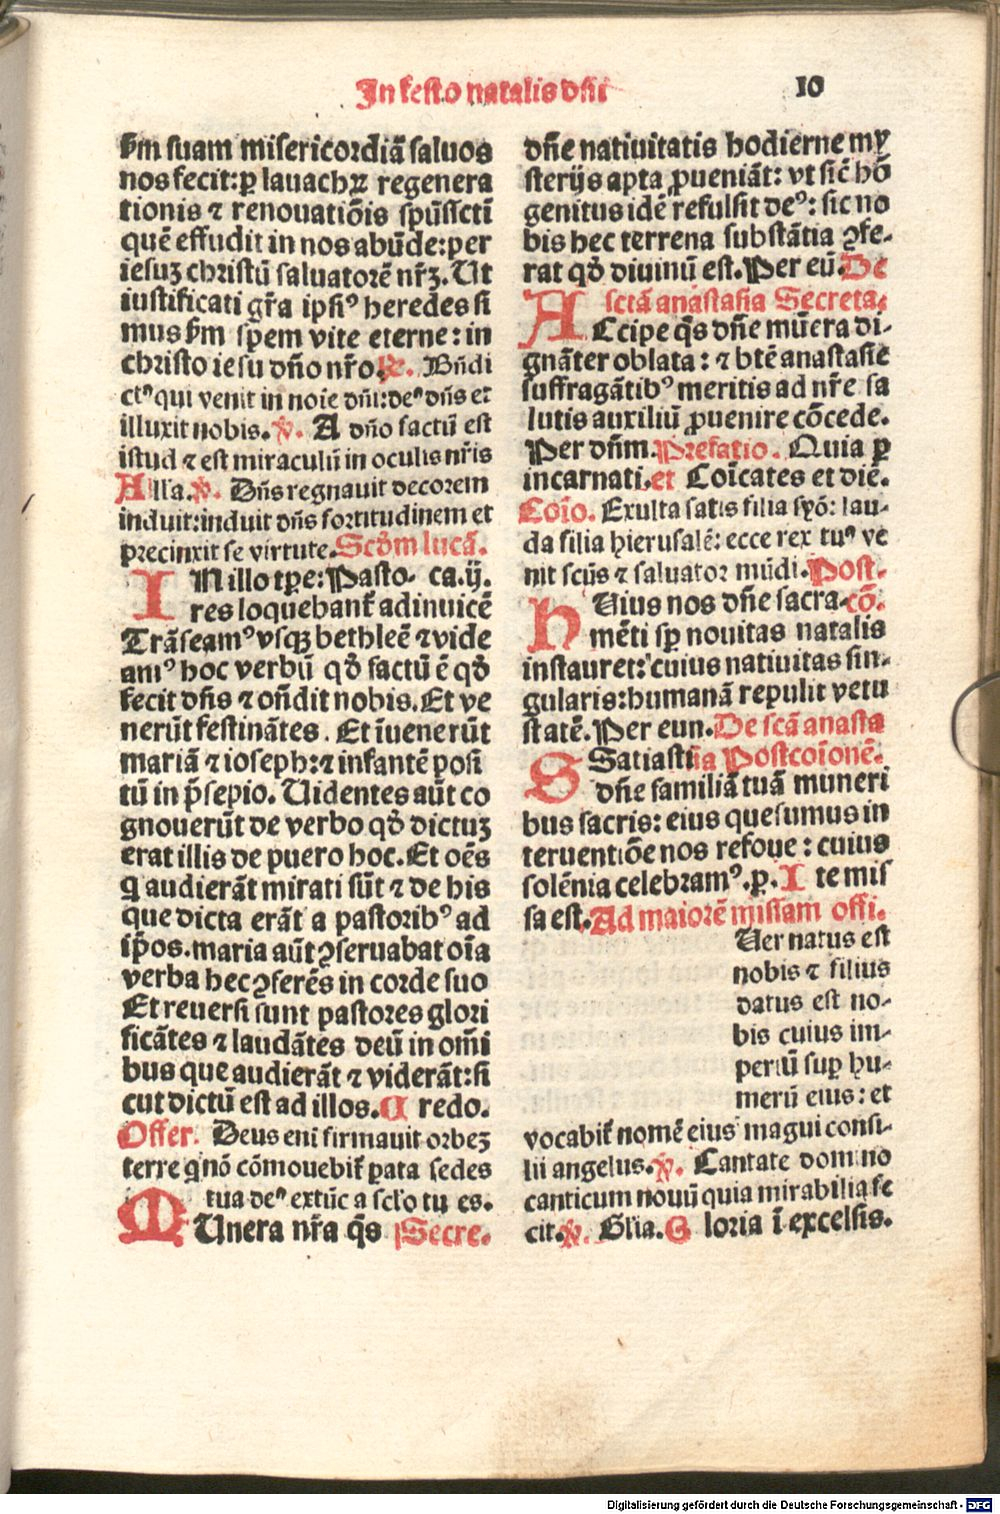 In festo natalis dñi
10
ẜm suam misericordiã saluos
nos fecit: ꝑ lauachꝝ regenera
tionis ⁊ renouatiõis spũssctĩ
quẽ effudit in nos abũde: per
iesuꝫ christũ saluatorẽ nr̃ꝫ. Ut
iustificati gr̃a ipsiꝰ heredes si
mus ẜm spem vite eterne: in
christo iesu dño nr̃o. ℟. Bñdi
ctꝰ qui venit in noĩe dñi: deꝰ dñs et
illuxit nobis. ℣. A dño factũ est
istud ⁊ est miraculũ in oculis nr̃is
Alla. ℣. Dñs regnauit decorem
induit: induit dñs fortitudinem et
precinxit se virtute. Scđm lucã.
IN illo tꝑe: Pasto- ca. ij.
res loquebant̃ adinuicẽ
Trãseamꝰ vsqꝫ bethleẽ ⁊ vide
amꝰ hoc verbũ qđ factũ ẽ qđ
fecit dñs ⁊ oñdit nobis. Et ve
nerũt festinãtes. Et ĩuenerũt
mariã ⁊ ioseph: ⁊ infantẽ posi
tũ in p̃sepio. Uidentes aũt co
gnouerũt de verbo qđ dictuꝫ
erat illis de puero hoc. Et oẽs
q̃ audierãt mirati sũt ⁊ de his
que dicta erãt a pastoribꝰ ad
ip̃os. maria aũt ꝯseruabat oĩa
verba hec ꝯferẽs in corde suo
Et reuersi sunt pastores glori
ficãtes ⁊ laudãtes deũ in om̃i
bus que audierãt ⁊ viderãt: si
cut dictũ est ad illos. C redo.
Offer. Deus eni firmauit orbeꝫ
terre q̃ nõ cõmouebit̃ ꝑata sedes
tua deꝰ extũc a sc̃lo tu es.
MUnera nr̃a q̃s Secre.
dñe natiuitatis hodierne my
sterijs apta ꝓueniãt: vt sic̃ hõ
genitus idẽ refulsit deꝰ: sic no
bis hec terrena substãtia ꝯfe-
rat qđ diuinũ est. Per eũ. De
sctã anastasia Secreta.
ACcipe q̃s dñe mũera di-
gnãter oblata: ⁊ btẽ anastasie
suffragãtibꝰ meritis ad nr̃e sa
lutis auxiliũ ꝓuenire cõcede.
Per dñm. Prefatio. Quia ꝑ
incarnati. et Coĩcates et diẽ.
Coĩo. Exulta satis filia syõ: lau-
da filia hierusalẽ: ecce rex tuꝰ ve
nit scũs ⁊ saluator mũdi. Post-
HUius nos dñe sacra- cõ.
mẽti sꝑ nouitas natalis
instauret: cuius natiuitas sin-
gularis: humanã repulit vetu
statẽ. Per eun. De scã anasta
SSatiasti sia Postcoĩonẽ.
dñe familiã tuã muneri
bus sacris: eius quesumus in
teruentiõe nos refoue: cuius
solẽnia celebramꝰ. ꝑ. I te mis
sa est. Ad maiorẽ missam offi.
Uer natus est
nobis ⁊ filius
datus est no-
bis cuius im-
periũ suꝑ hu-
merũ eius: et
vocabit̃ nomẽ eius magui consi-
lii angelus. ℣. Cantate domino
canticum nouũ quia mirabilia fe
cit. ℣. Gl̃ia. G loria ĩ excelsis.
Digitalisierung gefördert durch die Deutsche Forschungsgemeinschaft - DFG